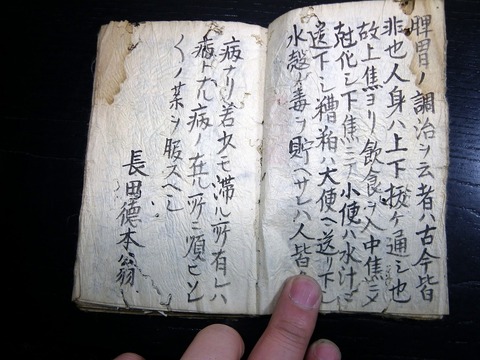 脾胃ノ調治ヲ云者ハ古今皆
非也人身ハ上下拔ケ通シ也
故上焦ヨリ飲食ヲ入中焦ニテ
尅化シ下焦ニテ小便ハ水汁ヲ
送下シ糟粕ハ大便ヘ送リ下シ
水穀ノ毒ヲ貯ヘサレハ人皆
病ナリ若少モ滞ル所有レハ
病トナル病ノ在ル所ニ順ヒソレ
〱ノ薬ヲ服スヘシ
長田徳本翁